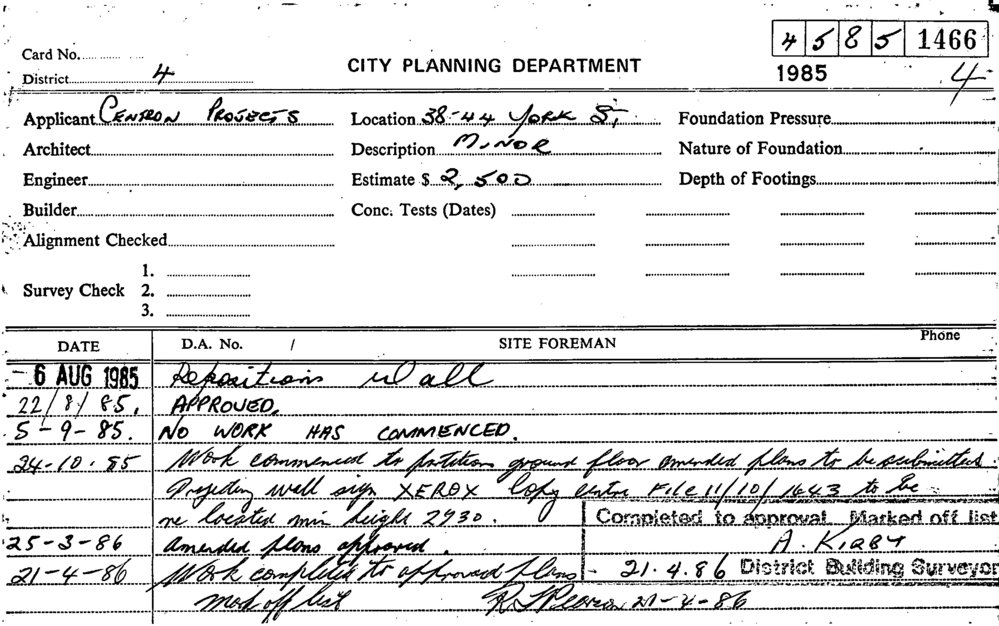 4 5 8 5 1466
Card No.
CITY PLANNING DEPARTMENT
District 4
1985 4
Applicant CENTRON PROJECTS Location 38-44 YORK ST, Foundation Pressure
Architect Description MINOR Nature of Foundation
Engineer Estimate $ 2,500 Depth of Footings
Builder Conc. Tests (Dates)
Alignment Checked
1.
Survey Check 2.
3.
DATE D.A. No. / SITE FOREMAN Phone
- 6 AUG 1985 Repositions Wall
22/8/85. APPROVED.
5-9-85. NO WORK HAS COMMENCED.
24-10-85 Work commenced to partition ground floor amended plans to be submitted.
Projecting wall sign XEROX Copy Centre File 11/10/1643 to be
re located min height 2930. Completed to approval. Marked off list
25-3-86 Amended plans approved. A. KIRBY
21-4-86 Work completed to approved plans - 21.4.86 District Building Surveyor
mark off list 21-4-86